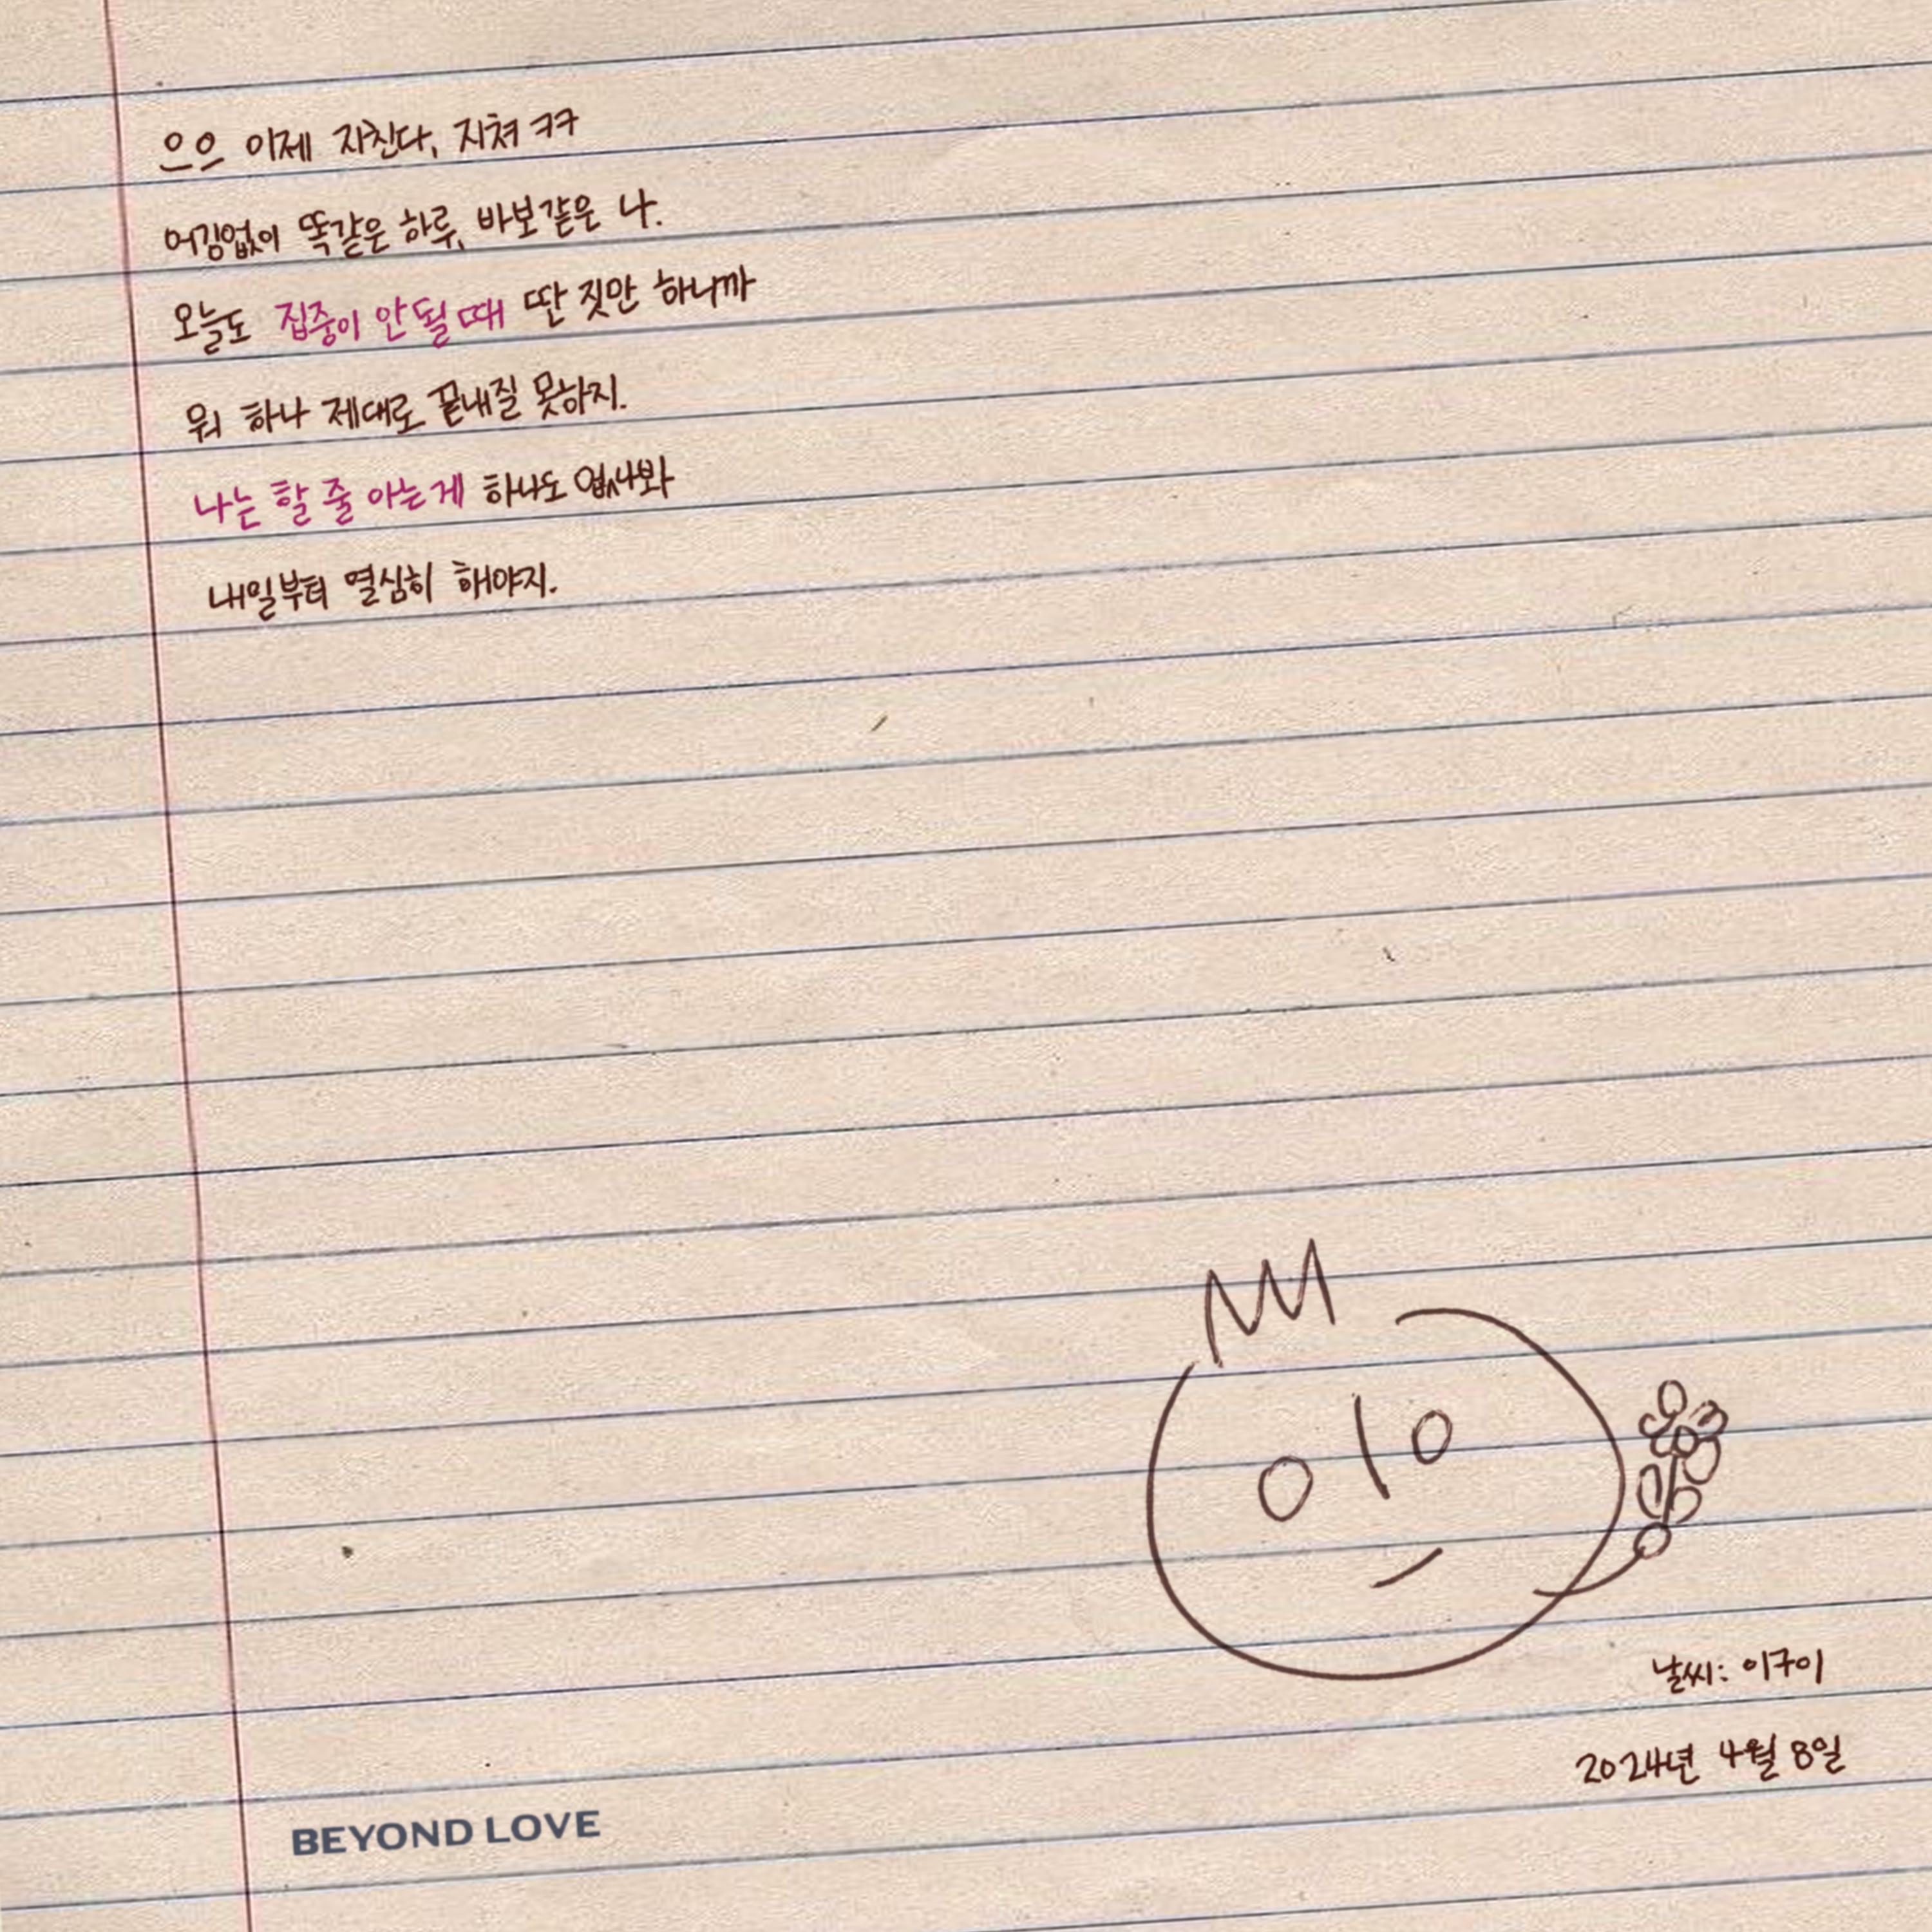 으으 이제 지친다, 지쳐 ㅋㅋ
어김없이 똑같은 하루, 바보같은 나.
오늘도 집중이 안 될 때 딴 짓만 하니까
뭐 하나 제대로 끝내질 못하지.
나는 할 줄 아는게 하나도 없나봐
내일부터 열심히 해야지.
날씨: 이구이
2024년 4월 8일
BEYOND LOVE